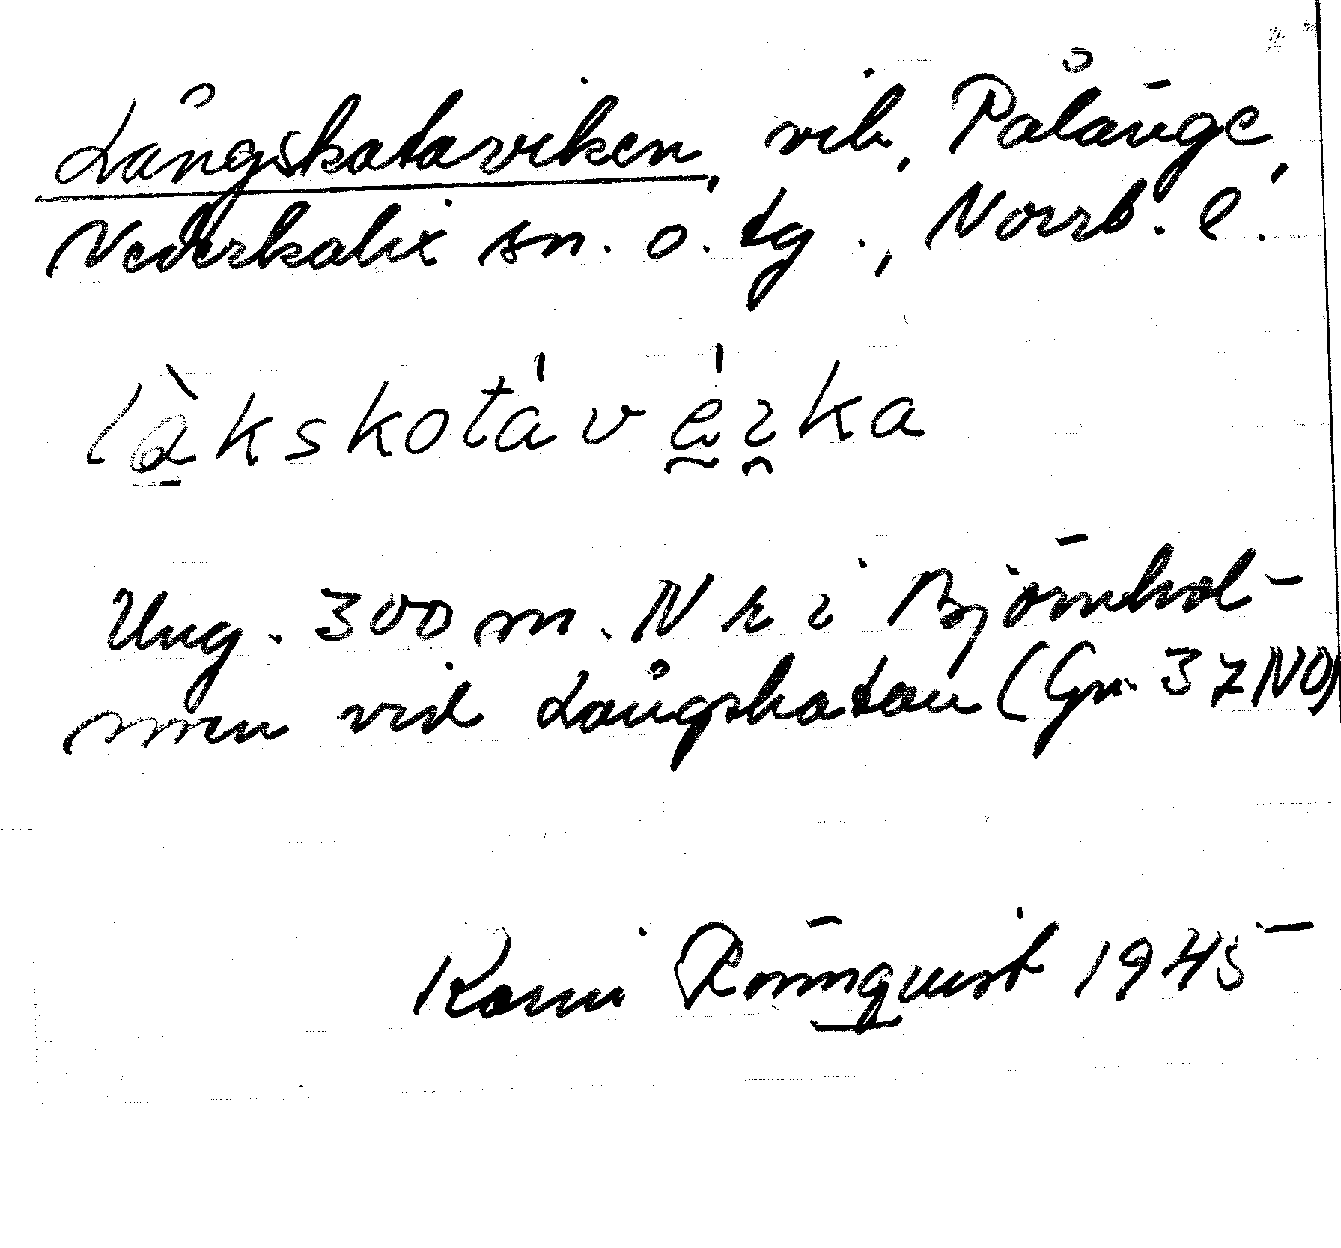 Långskataviken, vik, Pålänge,
Nederkalix sn. o. tg., Norrb. l.
làkskotàvèɩka
Ung. 300 m. N k i Björnhol-
men vid Långskatan (Gr. 37NO)
Karin Rönnqvist 1945